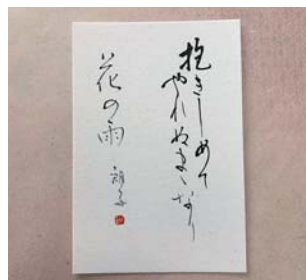 抱きしめて
やれぬまゝなり
花の雨